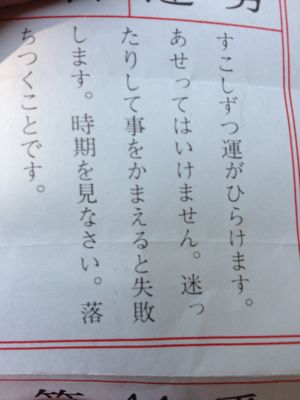 すこしずつ運がひらけます。
あせってはいけません。迷っ
たりして事をかまえると失敗
します。時期を見なさい。落
ちつくことです。